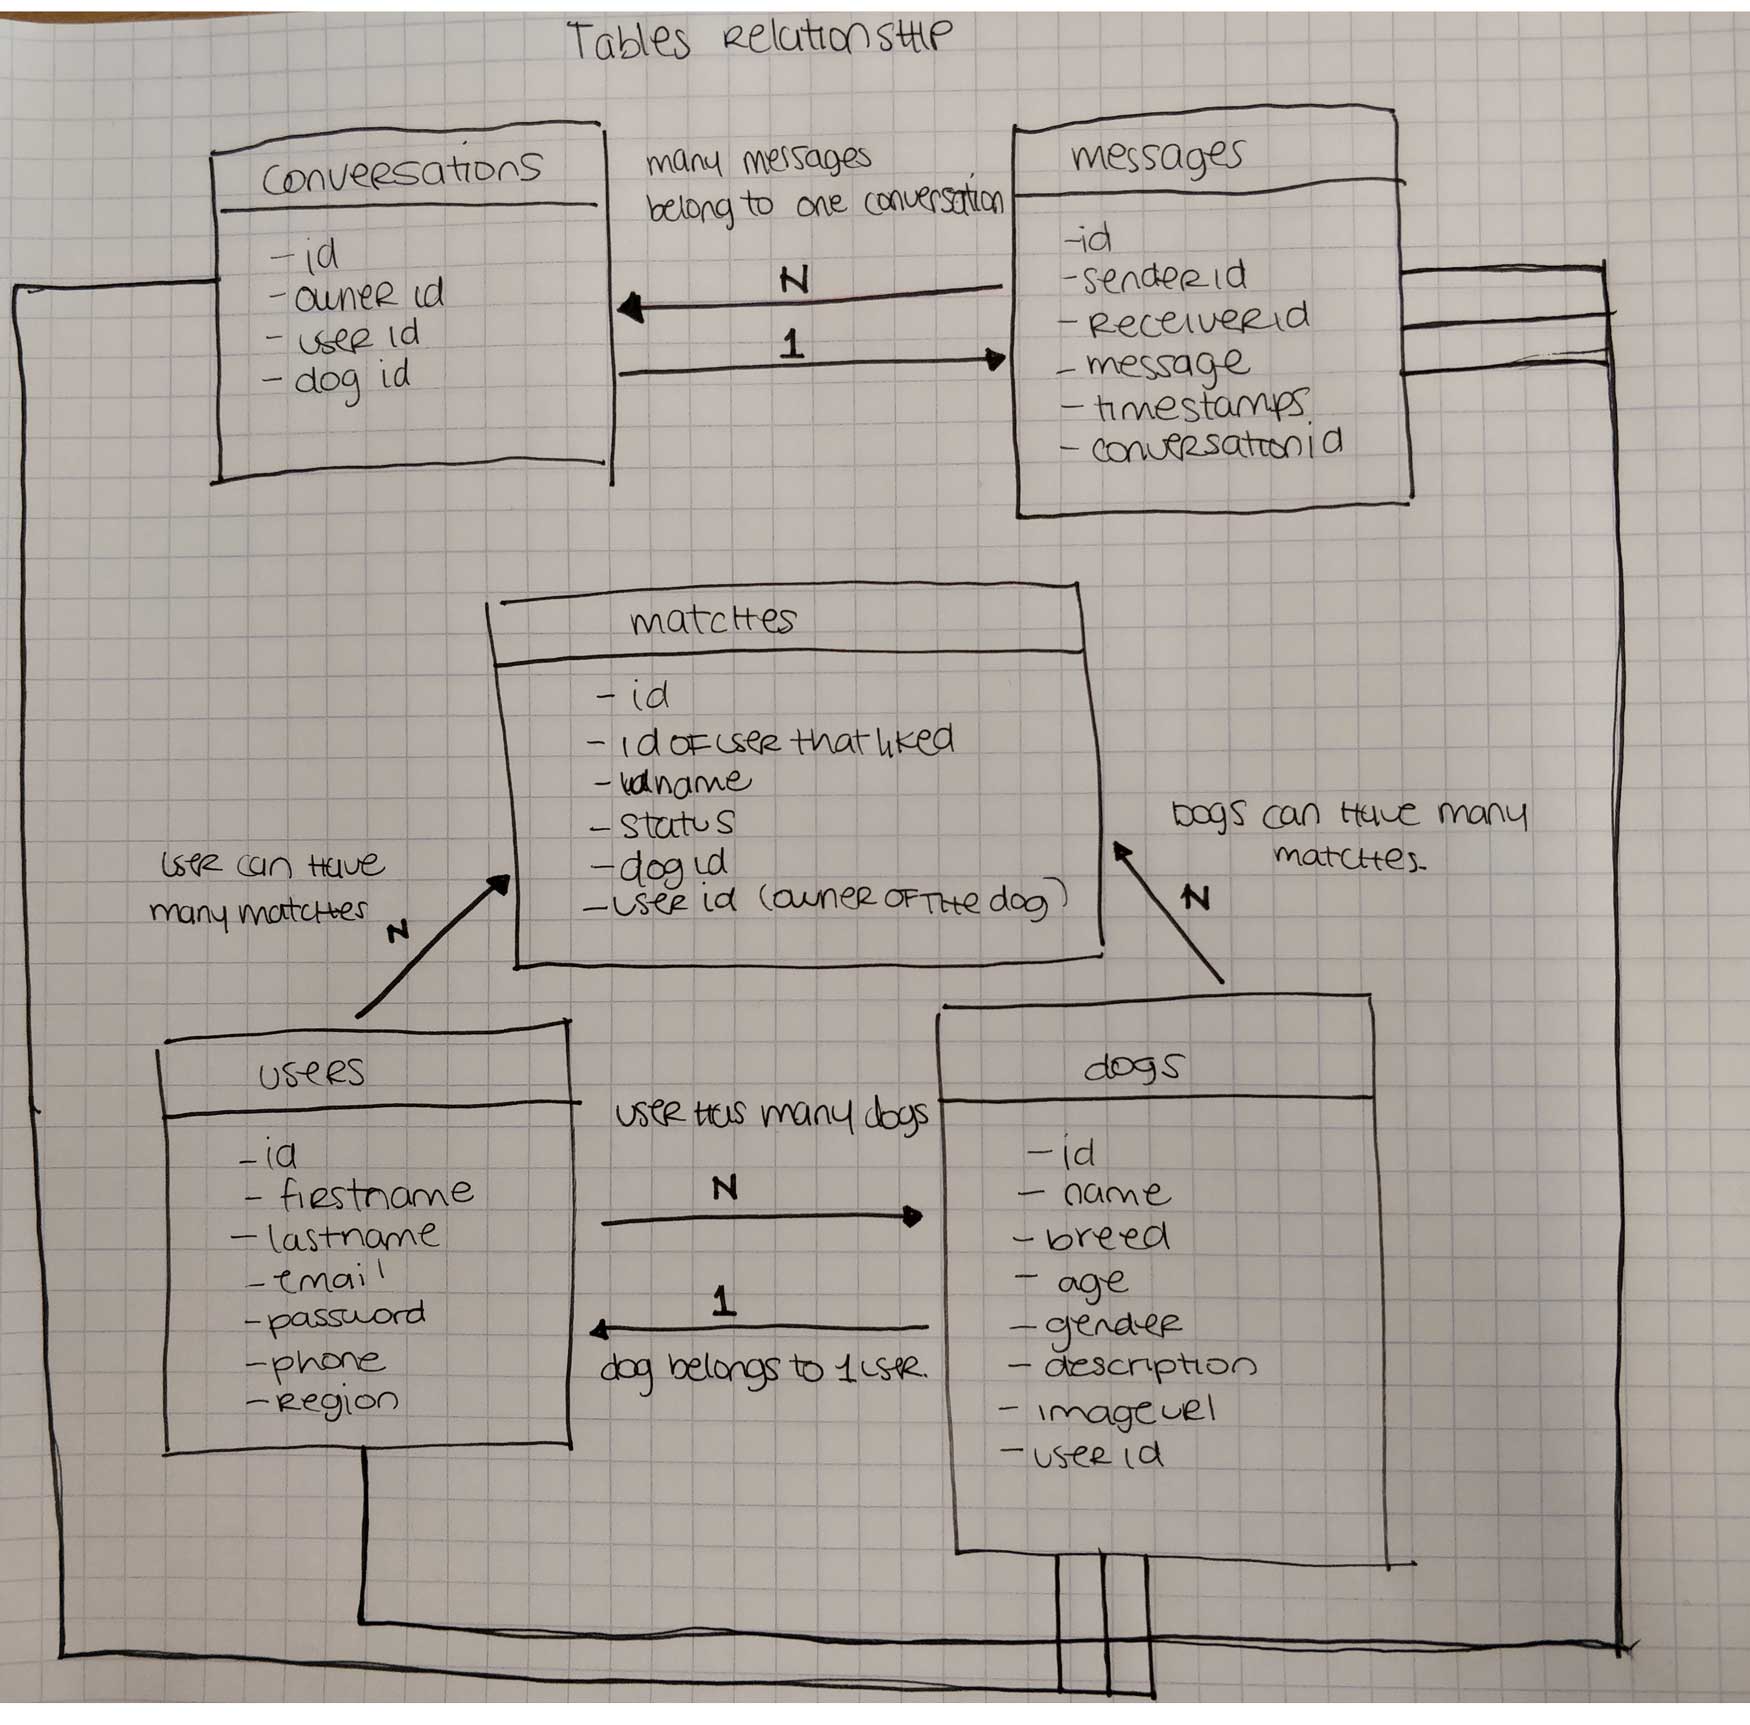 Tables Relationship
conversations
- id
- owner id
- user id
- dog id
many messages
belong to one conversation
N
1
messages
- id
- sender id
- Receiver id
- message
- timestamps
- conversation id
matches
- id
- id of user that liked
- name
- status
- dog id
- user id (owner of the dog)
user can have
many matches
N
Dogs can have many
matches.
N
users
- id
- firstname
- lastname
- email
- password
- phone
- Region
user has many dogs
N
1
dog belongs to 1 user.
dogs
- id
- name
- breed
- age
- gender
- description
- imageurl
- user id